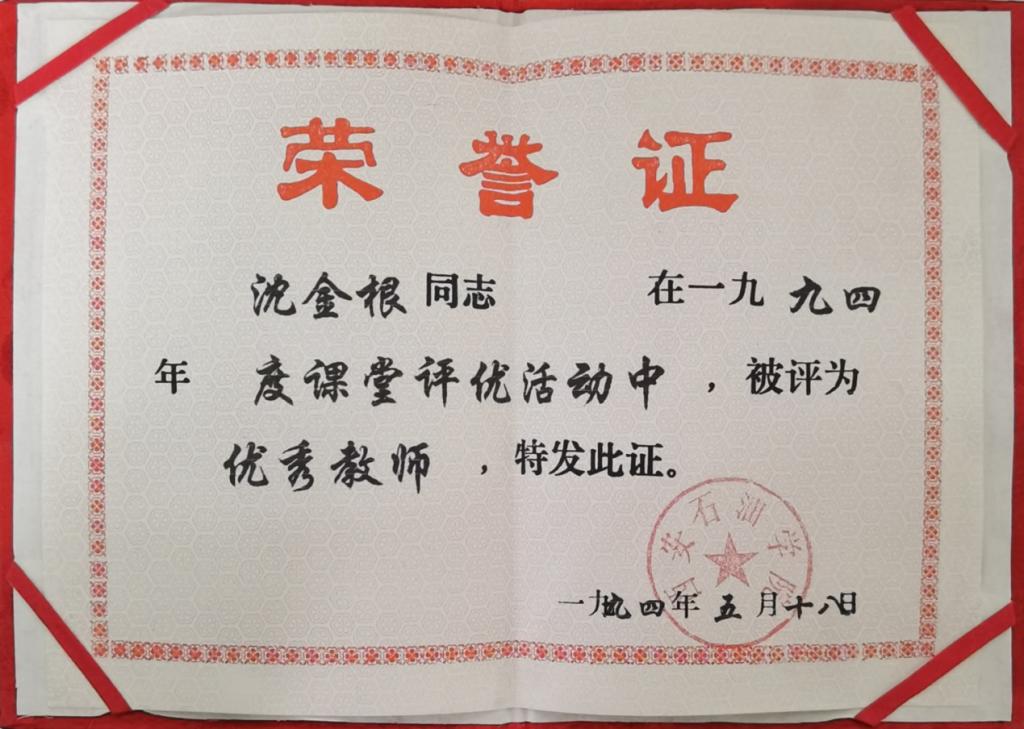 荣誉证
沈金根同志 在一九九四
年度课堂评优活动中，被评为
优秀教师，特发此证。
西安石油学院
一九九四年五月十八日